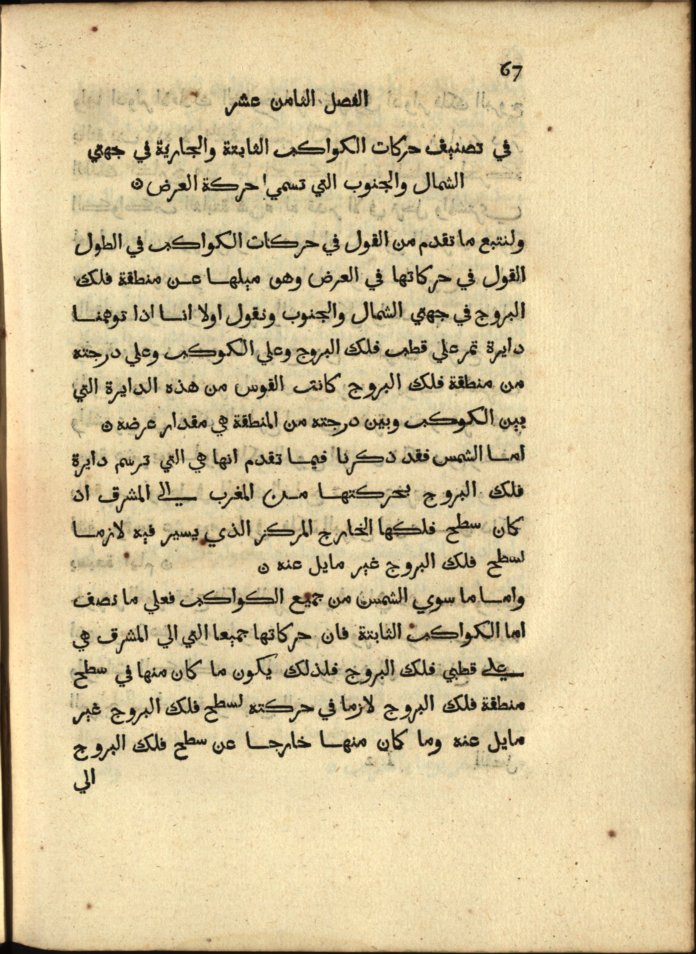 67
الفصل الثامن عشر
في تصنيف حركات الكواكب الثابتة والجارية في جهتي
الشمال والجنوب التي تسمي حركة العرض
ولنتبع ما تقدم من القول في حركات الكواكب في الطول
القول في حركاتها في العرض وهو ميلها عن منطقة فلك
البروج في جهتي الشمال والجنوب ونقول اولا انا اذا توهمنا
دايرة تمر علي قطب فلك البروج وعلي الكوكب وعلي درجته
من منطقة فلك البروج كانت القوس من هذه الدايرة التي
بين الكوكب وبين درجته من المنطقة هي مقدار عرضه
اما الشمس فقد ذكرنا فيما تقدم انها هي التي ترسم دايرة
فلك البروج بحركتها من المغرب الي المشرق اذ
كان سطح فلكها الخارج المركز الذي يسير فيه لازما
لسطح فلك البروج غير مايل عنه
واما ما سوي الشمس من جميع الكواكب فعلي ما نصف
اما الكواكب الثابتة فان حركاتها جميعا التي الي المشرق هي
علي قطبي فلك البروج فلذلك يكون ما كان منها في سطح
منطقة فلك البروج لازما في حركته لسطح فلك البروج غير
مايل عنه وما كان منها خارجا عن سطح فلك البروج
الي